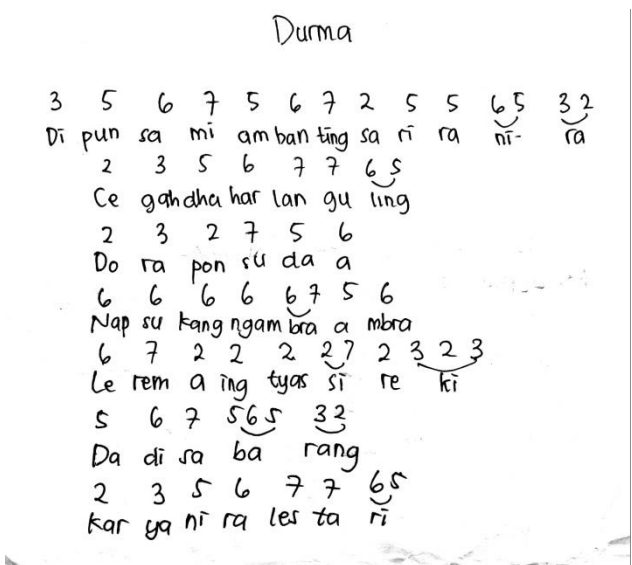 Durma
3 5 6 7 5 6 7 2 5 5 65 32
Di pun sa mi am ban ting sa ri ra ni- ra
2 3 5 6 7 7 65
Ce gah dha har lan gu ling
2 3 2 7 5 6
Do ra pon su da a
6 6 6 6 67 5 6
Nap su kang ngam bra a mbra
6 7 2 2 2 27 2 323
Le rem a ing tyas si re ki
5 6 7 565 32
Da di sa ba rang
2 3 5 6 7 7 65
kar ya ni ra les ta ri